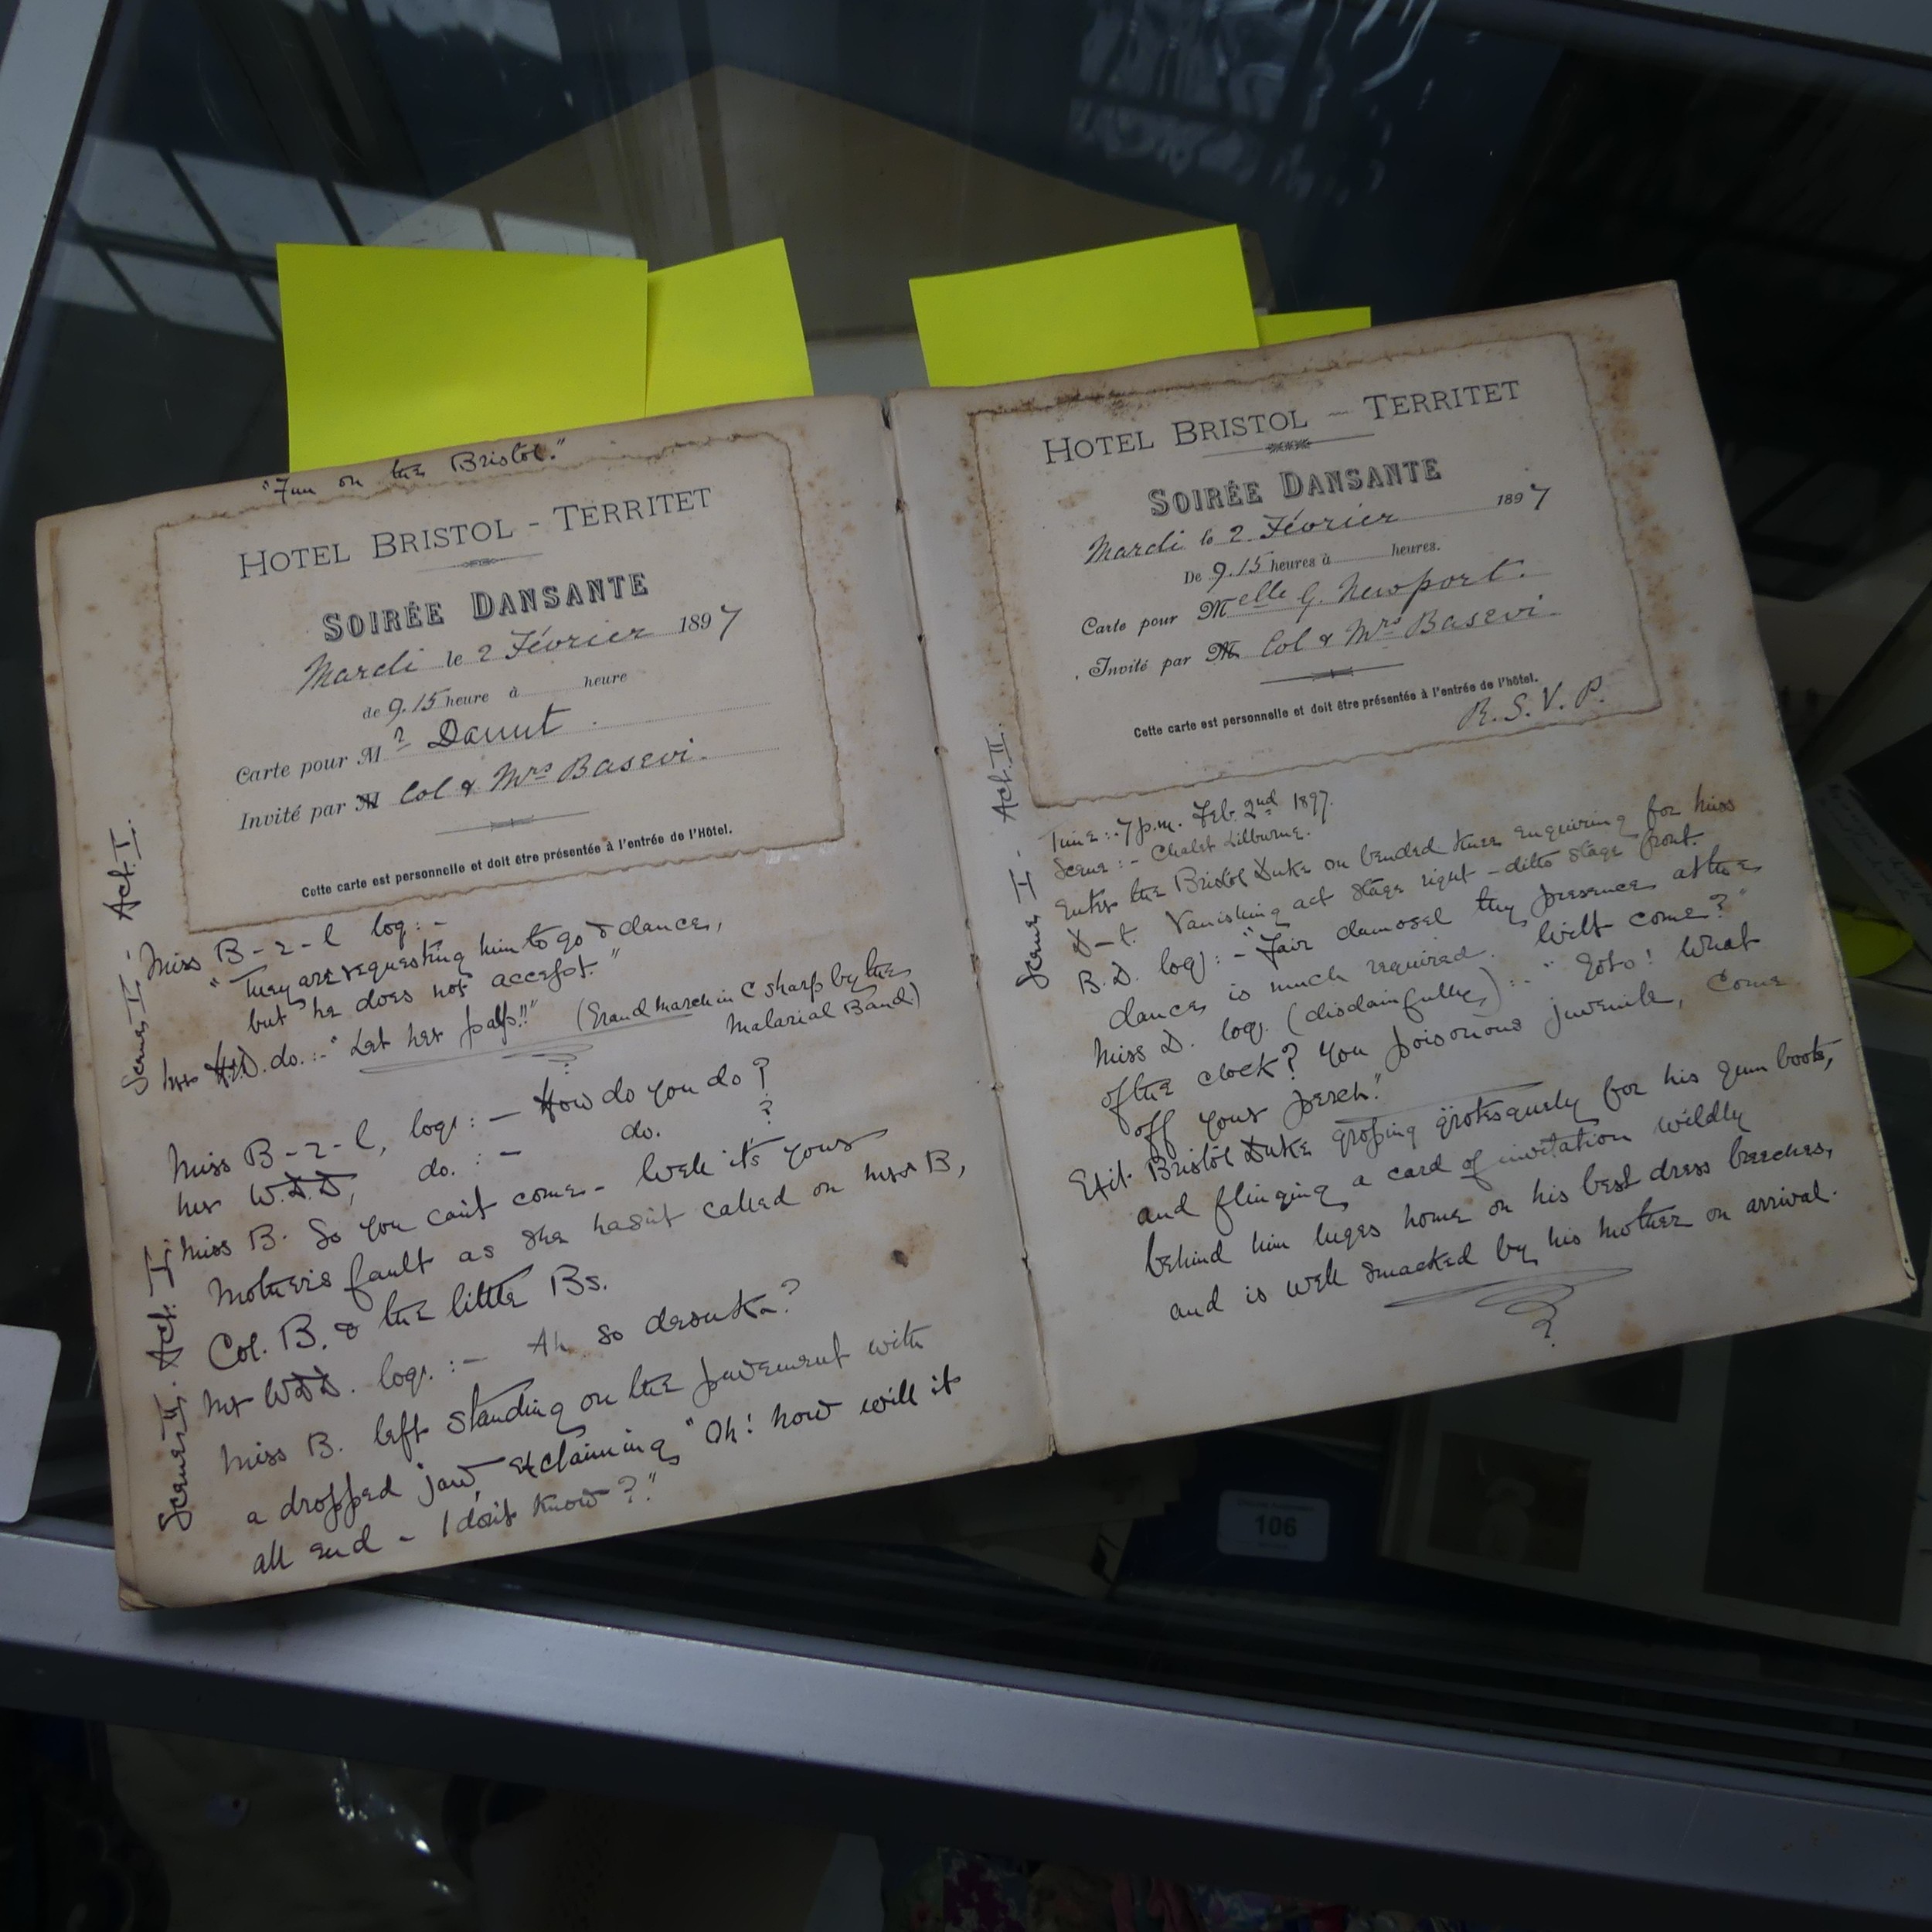 "Fun on the Bristol."
HOTEL BRISTOL - TERRITET
SOIRÉE DANSANTE
Mardi le 2 Février 1897
de 9.15 heure à heure
Carte pour Mr
Invité par M Col & Mrs Basevi.
Cette carte est personnelle et doit être présentée à l'entrée de l'Hôtel.
Scene I - Act. I.
Miss B-z-l loq: -
"They are requesting him to go & dance,
but he does not accept."
do. :- "Let her pass!!" (Grand March in C sharp by the
Malarial Band)
Scene II. Act. I.
Miss B-z-l, loq: - How do you do?
W.D.D, do. : - do. ?
Miss B. So you can't come - Well it's your
Mother's fault as she hasn't called on Mrs B,
Col. B. & the little Bs.
W.D.D. loq. :- Ah so desuka?
Miss B. left standing on the pavement with
a dropped jaw, exclaiming "Oh! how will it
all end - I don't know?"
HOTEL BRISTOL - TERRITET
SOIRÉE DANSANTE
Mardi le 2 Février 1897
De 9.15 heures à heures.
Carte pour Melle G. Newport.
Invité par M Col & Mrs Basevi.
Cette carte est personnelle et doit être présentée à l'entrée de l'hôtel.
R.S.V.P.
Scene I - Act. II.
Time :- 7 p.m. Feb. 2nd 1897.
Scene :- Chalet Lilburne.
Enter the Bristol Duke on bended knee enquiring for Miss
D-t. Vanishing act stage right - ditto stage front.
B.D. loq: - "Fair damosel thy presence at the
dance is much required. Wilt come?"
Miss D. loq. (disdainfully) :- "Goto! What
of the clock? You poisonous juvenile, come
off your perch."
Exit Bristol Duke groping grotesquely for his gum boots,
and flinging a card of invitation wildly
behind him luges home on his best dress breeches,
and is well smacked by his mother on arrival.
106